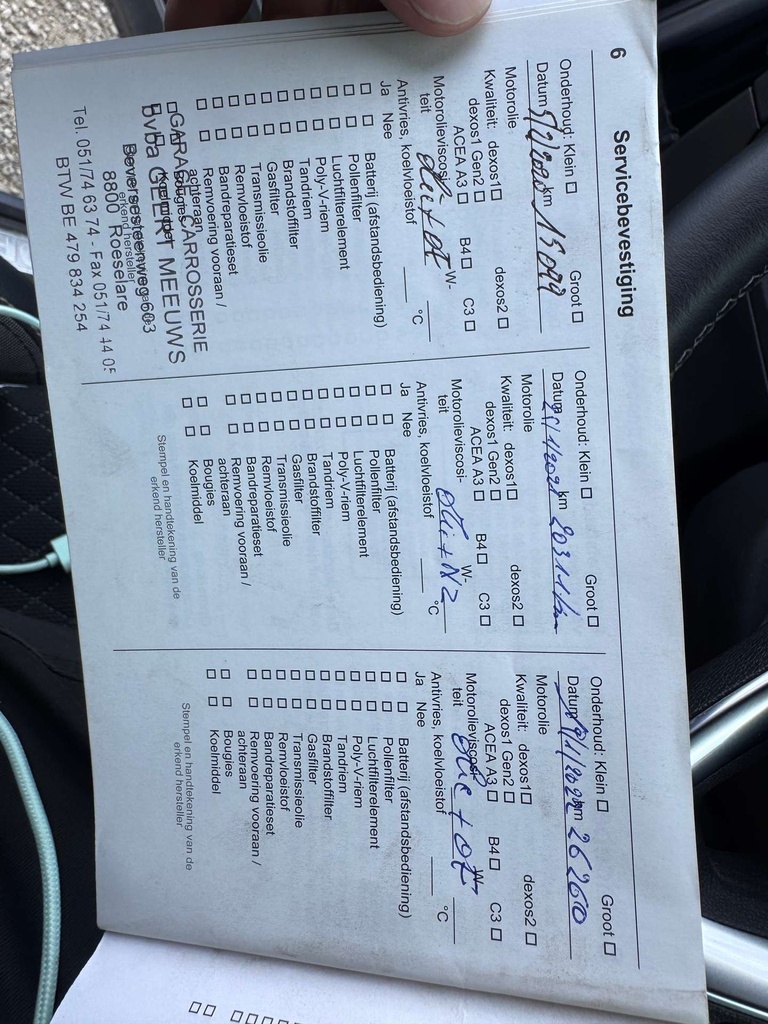 6
Servicebevestiging
Onderhoud: Klein Groot
Datum 5/2/2020 km 15099
Motorolie
Kwaliteit: dexos1 dexos2
dexos1 Gen2
ACEA A3 B4 C3
Motorolieviscosi- W-
teit olie +
Antivries, koelvloeistof °C
Ja Nee
Batterij (afstandsbediening)
Pollenfilter
Luchtfilterelement
Poly-V-riem
Tandriem
Brandstoffilter
Gasfilter
Transmissieolie
Remvloeistof
Bandreparatieset
Remvoering vooraan /
achteraan
Bougies
GARAGE - CARROSSERIE
bvba GEERT MEEUWS
Beversesteenweg 603
erkend hersteller
8800 Roeselare
Tel. 051/74 63 74 - Fax 051/74 44 05
BTW BE 479 834 254
Onderhoud: Klein Groot
Datum /1/2021 km 20311 km
Motorolie
Kwaliteit: dexos1 dexos2
dexos1 Gen2
ACEA A3 B4 C3
Motorolieviscosi- W-
teit olie +
Antivries, koelvloeistof °C
Ja Nee
Batterij (afstandsbediening)
Pollenfilter
Luchtfilterelement
Poly-V-riem
Tandriem
Brandstoffilter
Gasfilter
Transmissieolie
Remvloeistof
Bandreparatieset
Remvoering vooraan /
achteraan
Bougies
Koelmiddel
Stempel en handtekening van de
erkend hersteller
Onderhoud: Klein Groot
Datum /1/2022 km 26260
Motorolie
Kwaliteit: dexos1 dexos2
dexos1 Gen2
ACEA A3 B4 C3
Motorolieviscosi- W-
teit olie +
Antivries, koelvloeistof °C
Ja Nee
Batterij (afstandsbediening)
Pollenfilter
Luchtfilterelement
Poly-V-riem
Tandriem
Brandstoffilter
Gasfilter
Transmissieolie
Remvloeistof
Bandreparatieset
Remvoering vooraan /
achteraan
Bougies
Koelmiddel
Stempel en handtekening van de
erkend hersteller